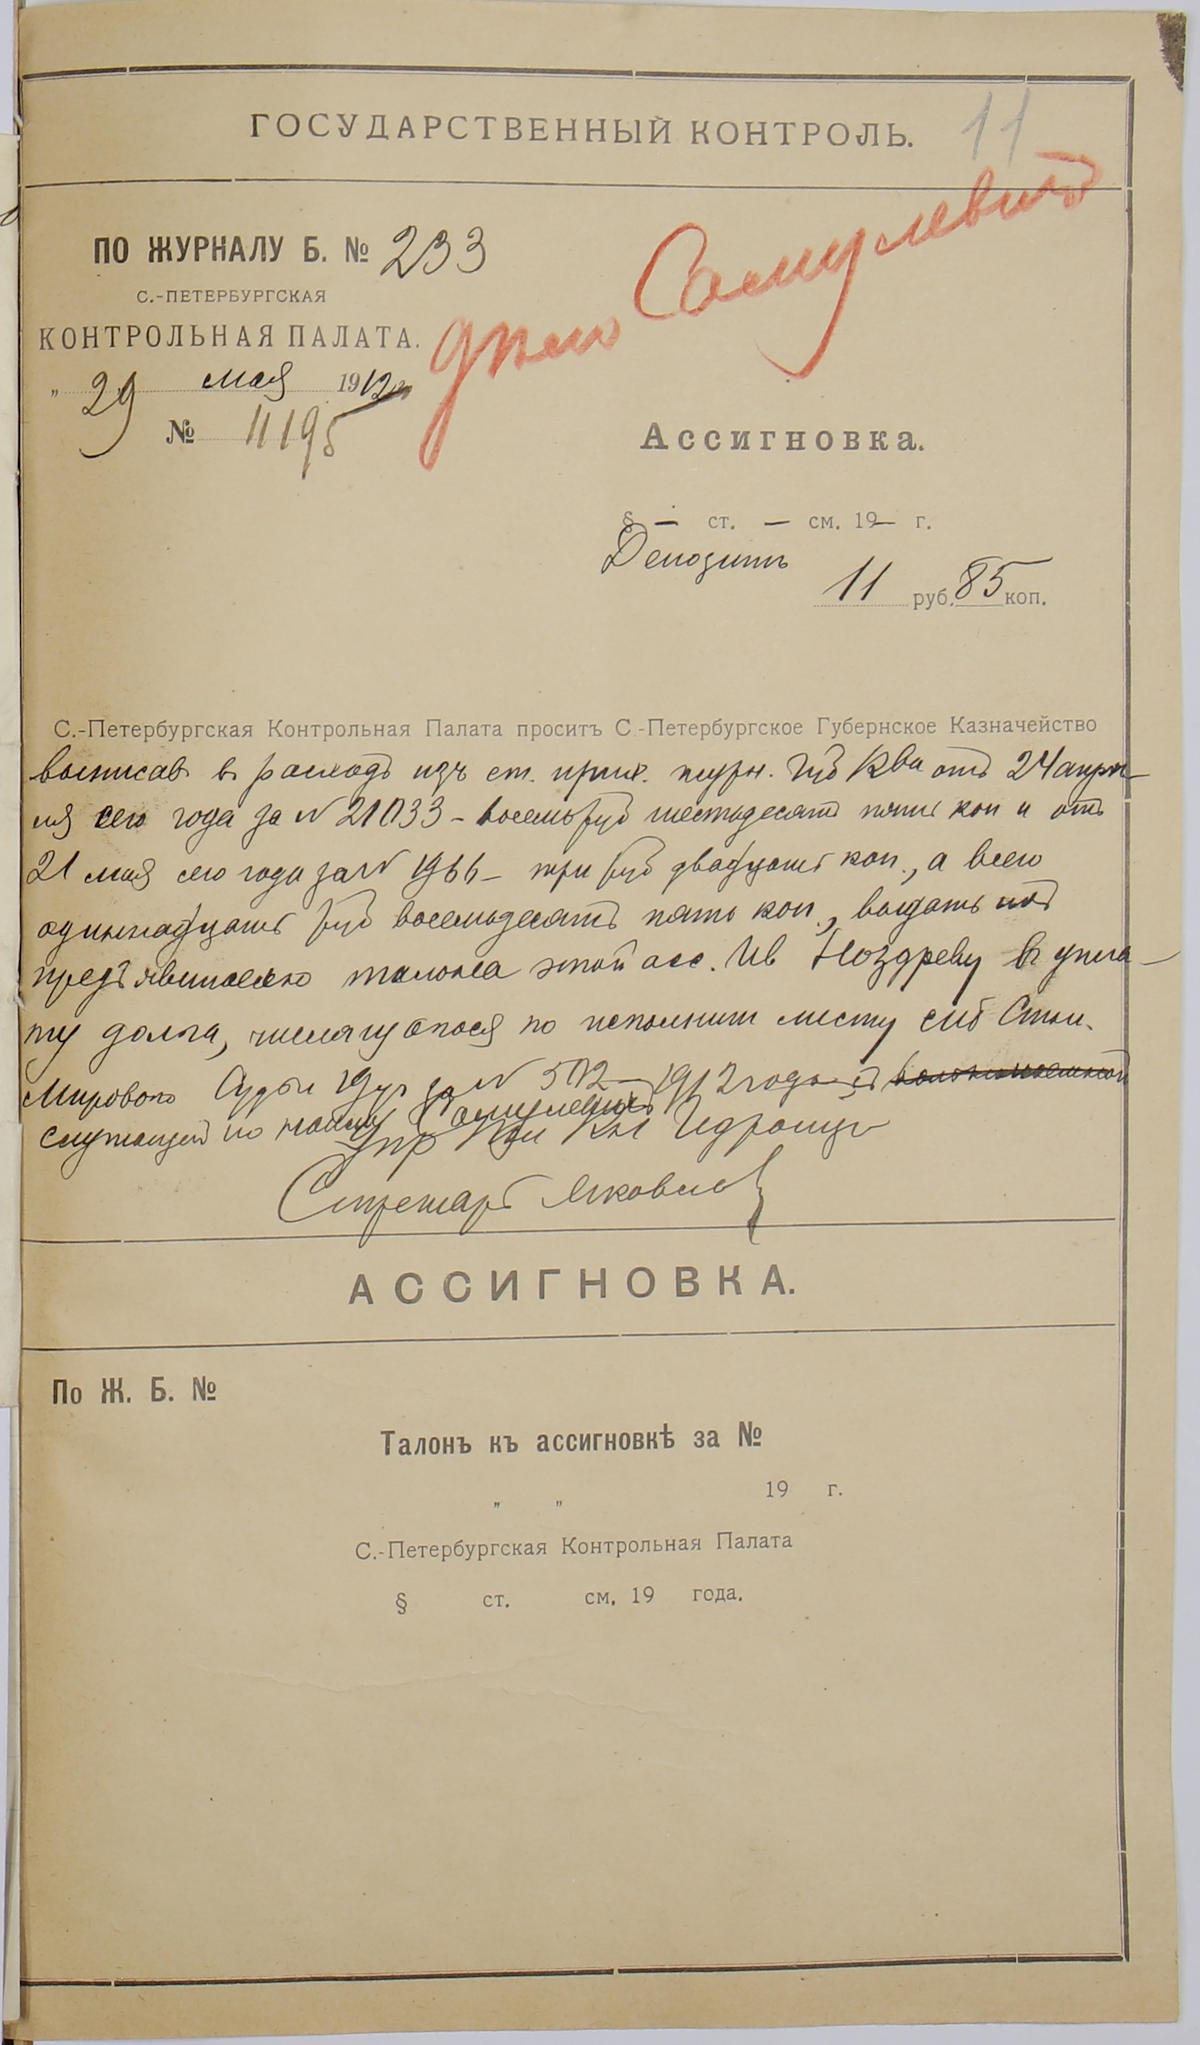 11
ГОСУДАРСТВЕННЫЙ КОНТРОЛЬ.
дѣло Самулевичъ
ПО ЖУРНАЛУ Б. № 233
С.-ПЕТЕРБУРГСКАЯ
КОНТРОЛЬНАЯ ПАЛАТА.
„ 29 мая 1912 г.
№ 11195
Ассигновка.
§ — ст. — см. 19— г.
Депозитъ
11 руб. 85 коп.
С.-Петербургская Контрольная Палата проситъ С-Петербургское Губернское Казначейство
выписавъ въ расходъ изъ ст. прих. журн. Губ Ква отъ 24 апрѣ-
ля сего года за № 21033 - восемь руб шестьдесятъ пять коп и отъ
21 мая сего года за № 1966 - три руб двадцать коп., а всего
одиннадцать руб восемьдесятъ пять коп, выдать подъ
предъявителю талона этой асс. Ив Ноздреву въ упла-
ту долга, числящагося по исполнит листу СПб Стол.
Мирового Судьи 19 уч за № 502 - 1912 года съ
служащей по найму Самулевичъ
Упр Пал Кн Гидройцъ
Секретарь Яковлев
АССИГНОВКА.
По Ж. Б. №
Талонъ къ ассигновкѣ за №
„ „ 19 г.
С.-Петербургская Контрольная Палата
§ ст. см. 19 года.